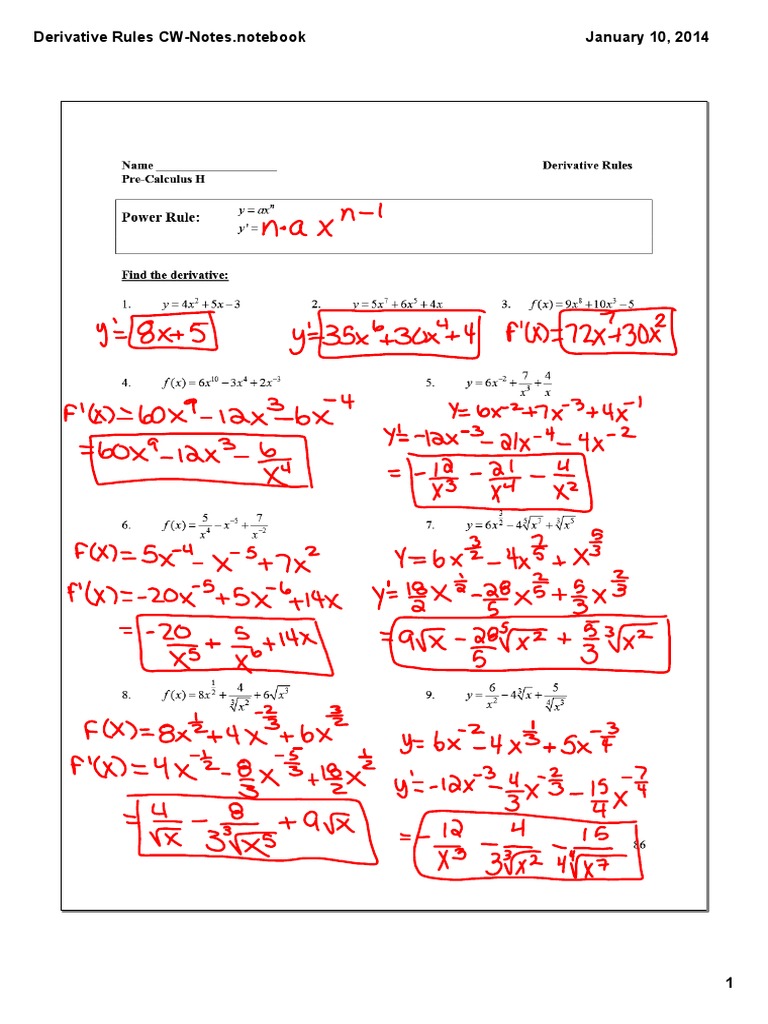 Derivative Rules CW-Notes.notebook
January 10, 2014
Name ____________________
Derivative Rules
Pre-Calculus H
Power Rule:
y = axⁿ
y' = n·a x^(n-1)
Find the derivative:
1. y = 4x² + 5x − 3
y' = 8x+5
2. y = 5x⁷ + 6x⁵ + 4x
y' = 35x⁶+30x⁴+4
3. f(x) = 9x⁸ + 10x³ − 5
f'(x) = 72x⁷+30x²
4. f(x) = 6x¹⁰ − 3x⁴ + 2x⁻³
f'(x) = 60x⁹ − 12x³ − 6x⁻⁴
= 60x⁹ − 12x³ − 6/x⁴
5. y = 6x⁻² + 7/x³ + 4/x
y = 6x⁻² + 7x⁻³ + 4x⁻¹
y' = -12x⁻³ − 21x⁻⁴ − 4x⁻²
= -12/x³ − 21/x⁴ − 4/x²
6. f(x) = 5/x⁴ − x⁻⁵ + 7/x⁻²
f(x) = 5x⁻⁴ − x⁻⁵ + 7x²
f'(x) = -20x⁻⁵ + 5x⁻⁶ + 14x
= -20/x⁵ + 5/x⁶ + 14x
7. y = 6x^(3/2) − 4⁵√x⁷ + ³√x⁵
y = 6x^(3/2) − 4x^(7/5) + x^(5/3)
y' = 18/2 x^(1/2) − 28/5 x^(2/5) + 5/3 x^(2/3)
= 9√x − 28/5 ⁵√x² + 5/3 ³√x²
8. f(x) = 8x^(1/2) + 4/³√x² + 6√x³
f(x) = 8x^(1/2) + 4x^(-2/3) + 6x^(3/2)
f'(x) = 4x^(-1/2) − 8/3 x^(-5/3) + 18/2 x^(1/2)
= 4/√x − 8/3³√x⁵ + 9√x
9. y = 6/x² − 4³√x + 5/⁴√x³
y = 6x⁻² − 4x^(1/3) + 5x^(-3/4)
y' = -12x⁻³ − 4/3 x^(-2/3) − 15/4 x^(-7/4)
= -12/x³ − 4/3³√x² − 15/4⁴√x⁷
86
1